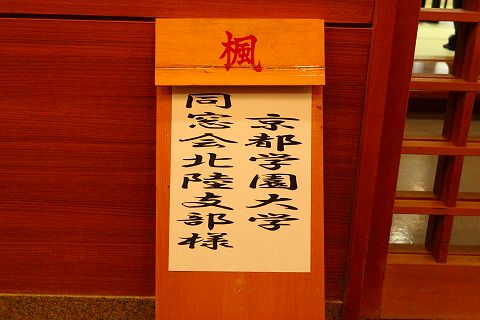 楓
京都学園大学
同窓会北陸支部様